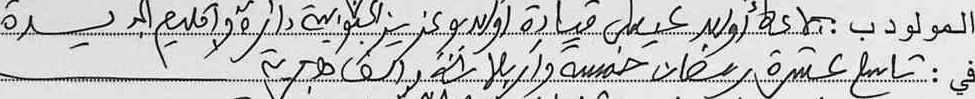 المولود ب : جماعة أولاد عيسى قيادة أولاد بوعزيز الجنوبية دائرة وإقليم الجديدة
في : تاسع عشرة رمضان خمسة وأربعمائة وألف هجرية